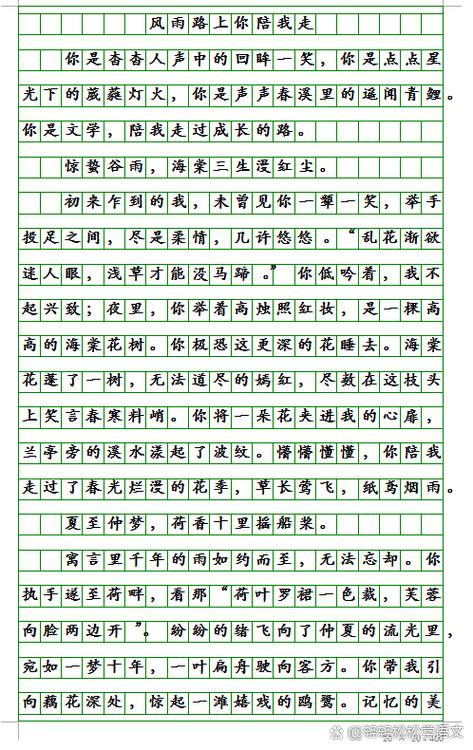 风雨路上你陪我走
你是杳杳人声中的回眸一笑，你是点点星
光下的葳蕤灯火，你是声声春溪里的遥闻青鲤。
你是文学，陪我走过成长的路。
惊蛰谷雨，海棠三生漫红尘。
初来乍到的我，未曾见你一颦一笑，举手
投足之间，尽是柔情，几许悠悠。“乱花渐欲
迷人眼，浅草才能没马蹄。”你低吟着，我不
起兴致；夜里，你举着高烛照红妆，是一棵高
高的海棠花树。你极恐这更深的花睡去。海棠
花蓬了一树，无法道尽的嫣红，尽数在这枝头
上笑言春寒料峭。你将一朵花夹进我的心扉，
兰亭旁的溪水漾起了波纹。懵懵懂懂，你陪我
走过了春光烂漫的花季，草长莺飞，纸鸢烟雨。
夏至仲梦，荷香十里摇船桨。
寓言里千年的雨如约而至，无法忘却。你
执手送至荷畔，看那“荷叶罗裙一色裁，芙蓉
向脸两边开”。纷纷的绪飞向了仲夏的流光里，
宛如一梦十年，一叶扁舟驶向客方。你带我引
向藕花深处，惊起一滩嬉戏的鸥鹭。记忆的美
@轻轻松松学语文